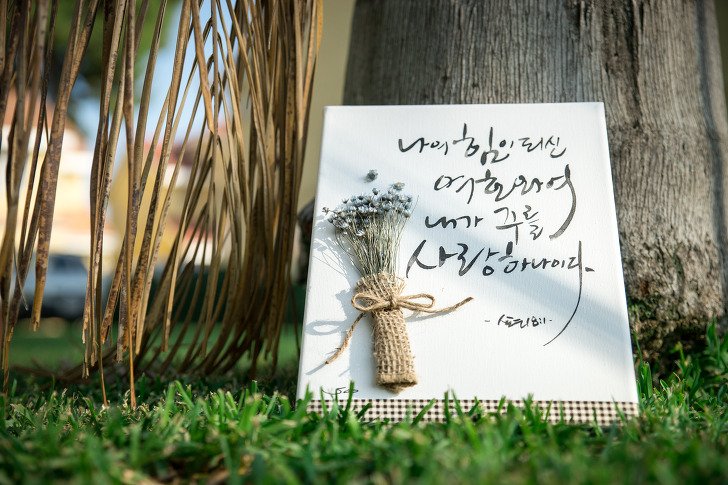 나의 힘이 되신
여호와여
내가 주를
사랑하나이다.
- 시편18:1 -